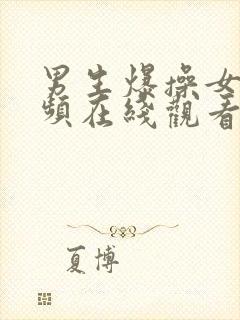 男生爆操女
頻在綫觀看
夏博